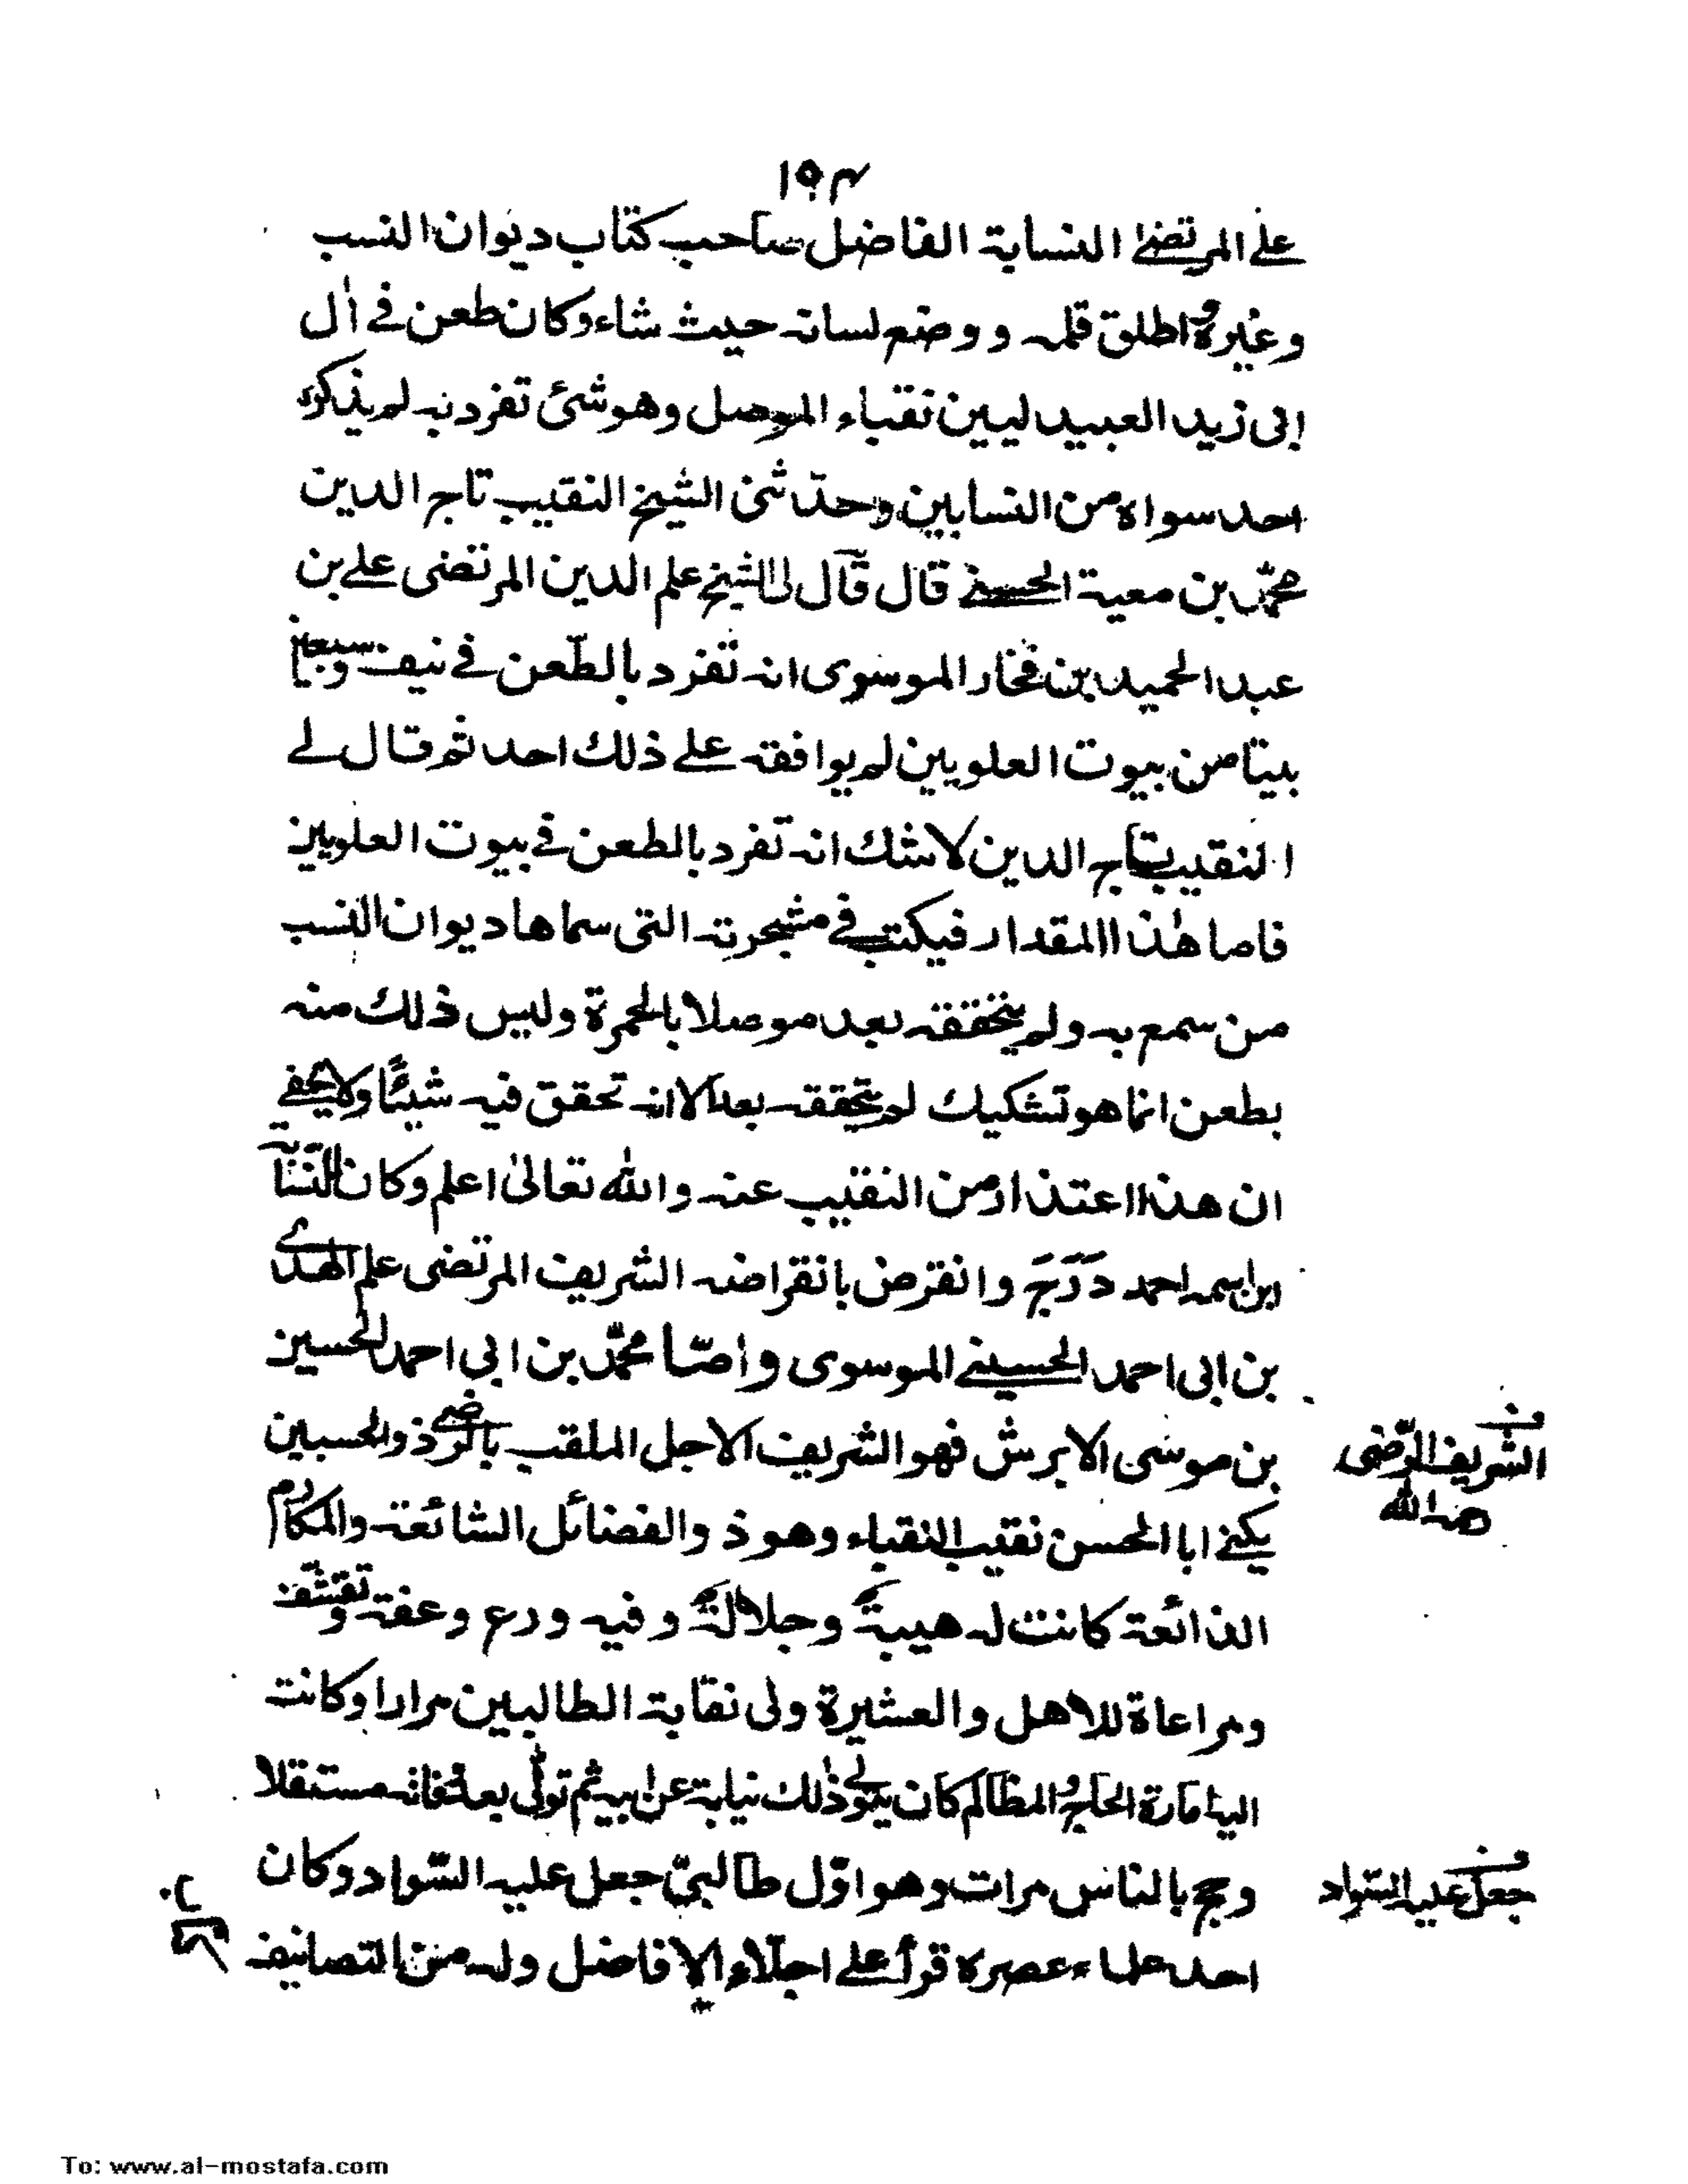 ١٩٤
على المرتضى النسابة الفاضل صاحب كتاب ديوان النسب
وغيره واطلق قلمه و وضع لسانه حيث شاء وكان طعن في اٰل
ابى زيد العبيد ليين نقباء الموصل وهو شئ تفرد به لم يذكره
احد سواه من النسابين وحدّثنى الشيخ النقيب تاج الدين
محمّد بن معية الحسنى قال قال لى الشيخ علم الدين المرتضى على بن
عبد الحميد بن فخار الموسوى انه تفرد بالطّعن فى نيف وسبعين
بيتا من بيوت العلويين لم يوافقه على ذلك احد ثم قال لى
النقيب تاج الدين لا شك انه تفرد بالطعن فى بيوت العلويين
فاما هٰذا المقدار فيكتب فى مشجرته التى سماها ديوان النسب
من سمع به ولم يتحققه بعد موصلا بالحمرة وليس ذلك منه
بطعن انما هو تشكيك لم يتحققه بعد الا انه تحقق فيه شيئًا ولا يخفى
ان هذا اعتذار من النقيب عنه والله تعالىٰ اعلم وكان للنسّابة
ابن اسمه احمد دَرَجَ وانقرض بانقراضه الشريف المرتضى علم الهدى
بن ابى احمد الحسينى الموسوى وامّا محمّد بن ابى احمد الحسين
بن موسى الابرش فهو الشريف الاجل الملقب بالرضى ذو الحسبين
يكنى ابا الحسن نقيب النقباء وهو ذ والفضائل الشائعة والمكارم
الذائعة كانت له هيبة وجلالة وفيه ورع وعفة وتقشف
ومراعاة للاهل والعشيرة ولى نقابة الطالبين مرارا وكانت
اليه امارة الحاج والمظالم كان يتولى ذلك نيابة عن ابيه ثم تولّى بعد وفاته مستقلا
وحج بالناس مرات وهو اوّل طالبىّ جعل عليه السّواد وكان
احد علماء عصره قرأ على اجلّاء الافاضل وله من التصانيف
الشريف الرّضى
رحمه الله
جعل عليه السّواد
To: www.al-mostafa.com